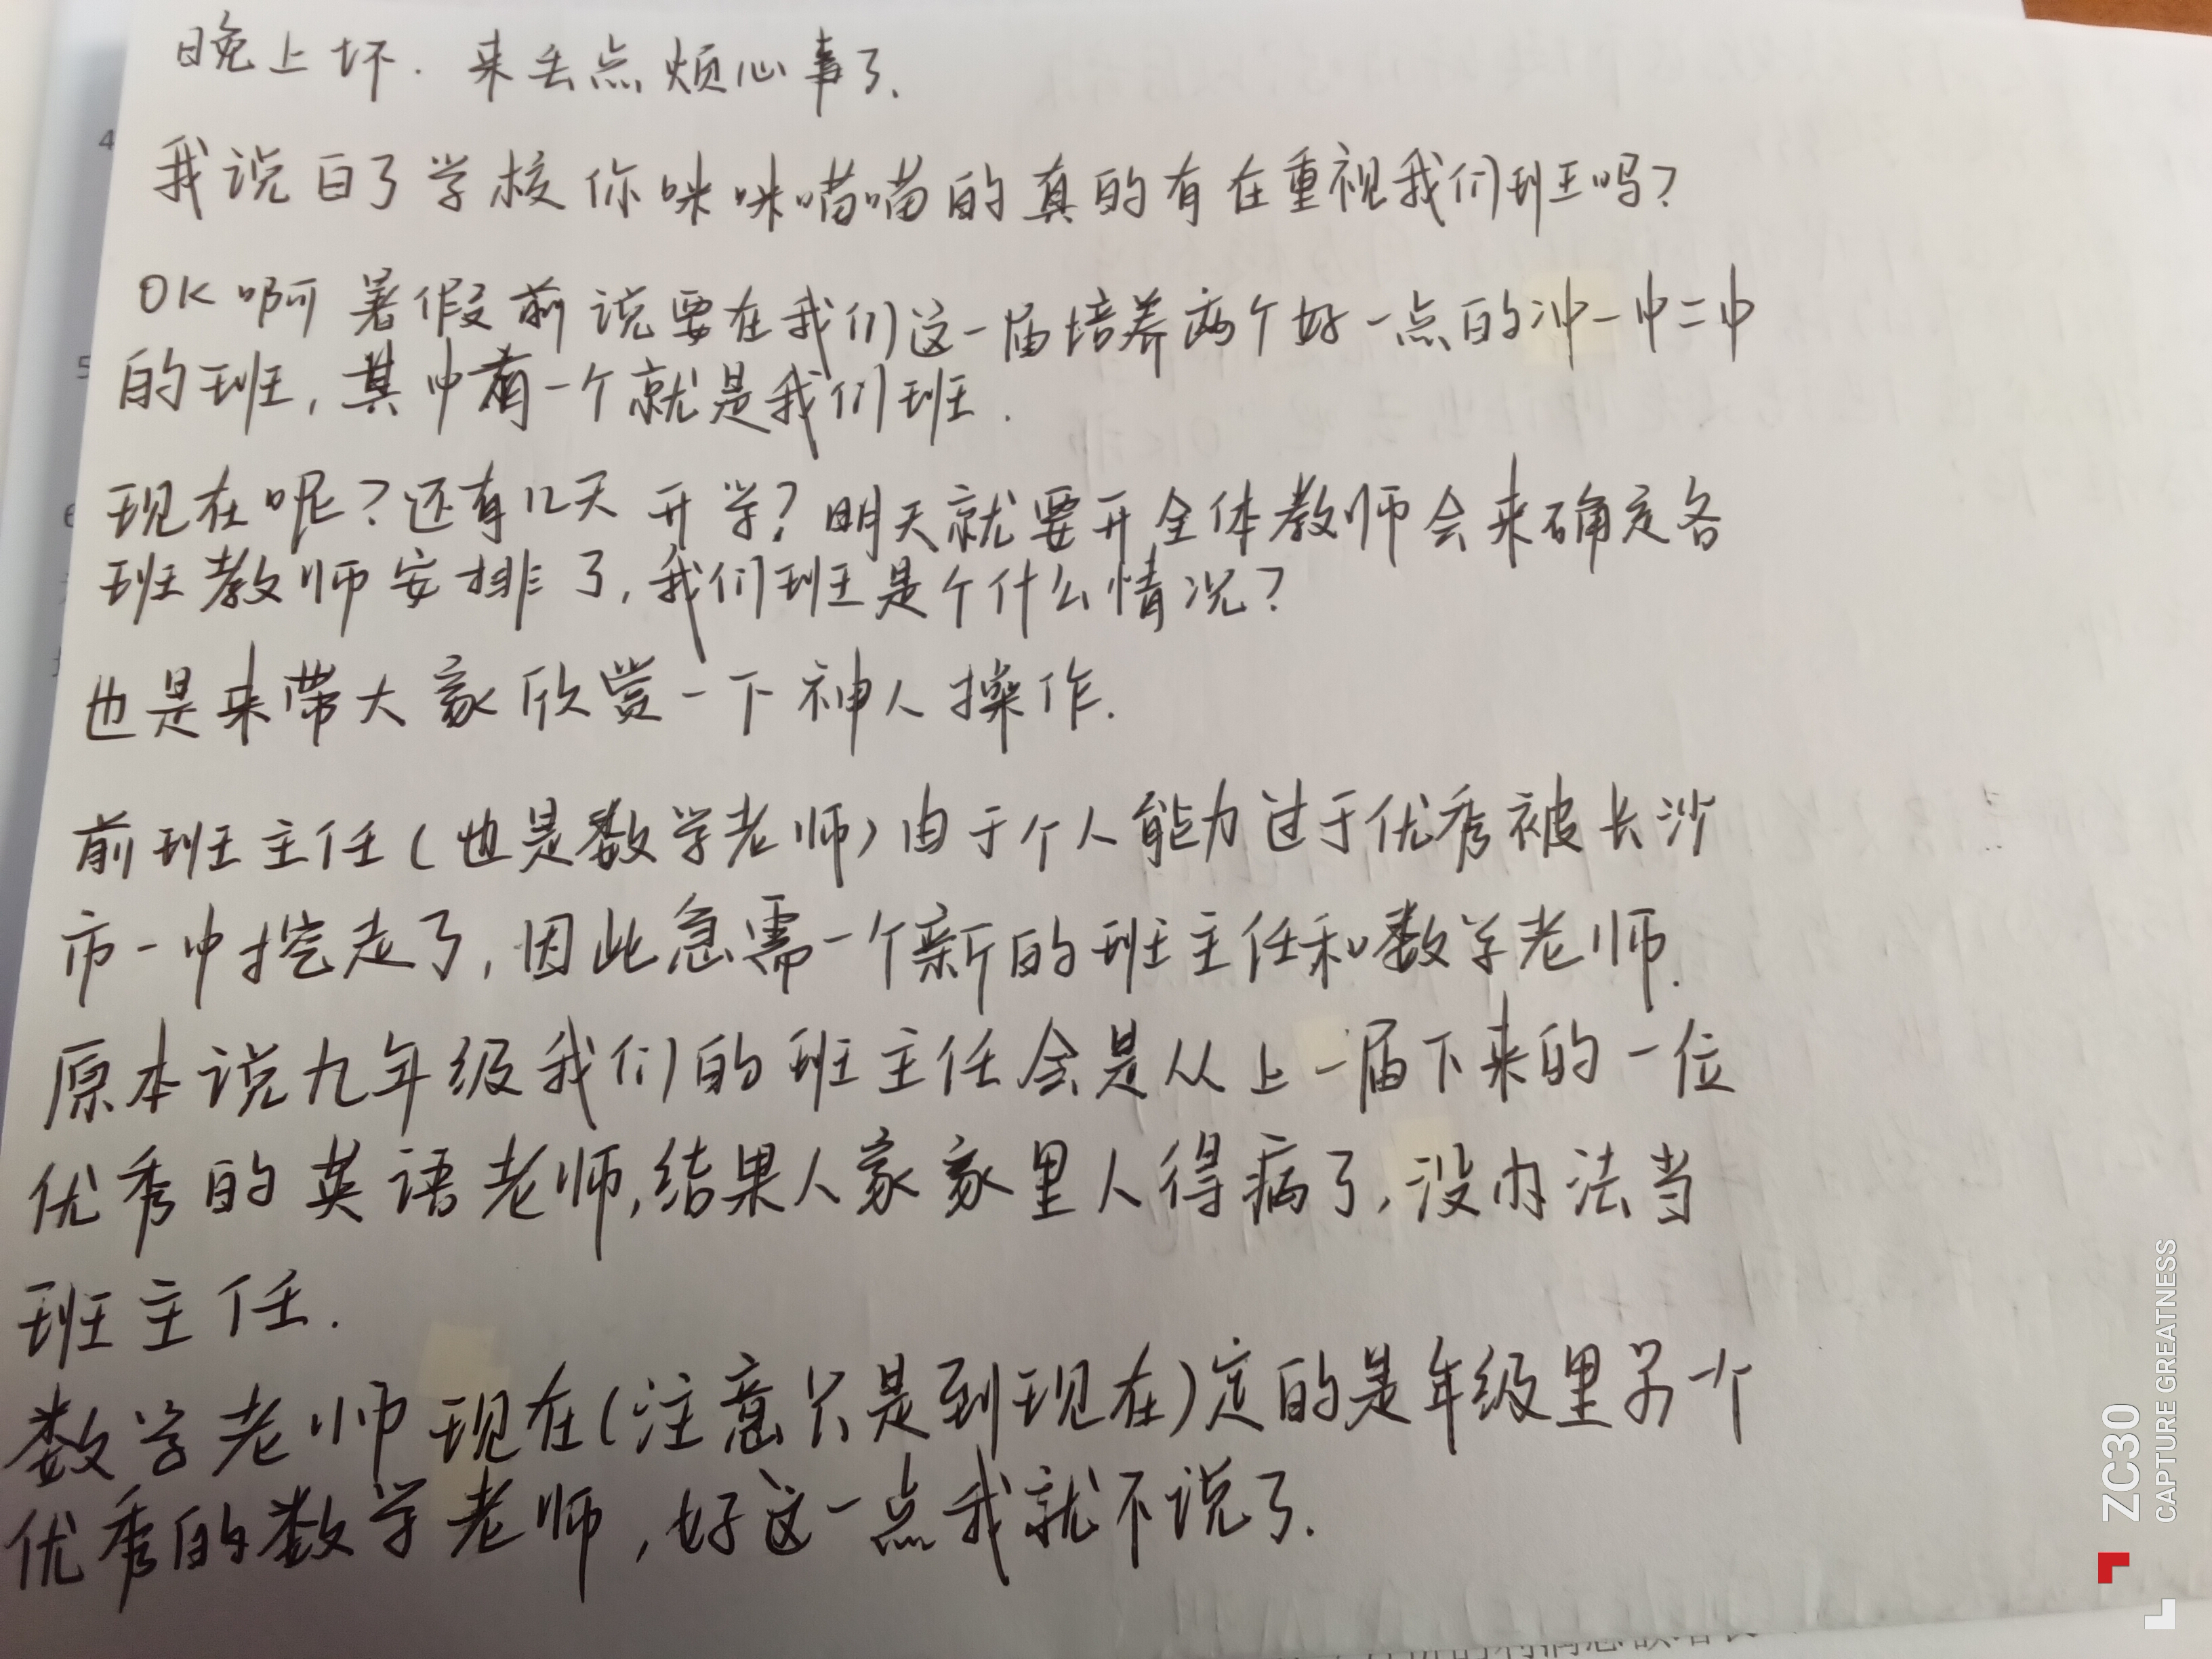 晚上坏. 来丢点烦心事了.
我说白了学校你咪咪喵喵的真的有在重视我们班吗?
OK啊 暑假前说要在我们这一届培养两个好一点的冲一中二中
的班, 其中有一个就是我们班.
现在呢?还有几天开学?明天就要开全体教师会来确定各
班教师安排了,我们班是个什么情况?
也是来带大家欣赏一下神人操作.
前班主任(也是数学老师)由于个人能力过于优秀被长沙
市一中挖走了,因此急需一个新的班主任和数学老师.
原本说九年级我们的班主任会是从上一届下来的一位
优秀的英语老师,结果人家家里人得病了,没办法当
班主任.
数学老师现在(注意只是到现在)定的是年级里另一个
优秀的数学老师,好这一点我就不说了.
ZC30
CAPTURE GREATNESS